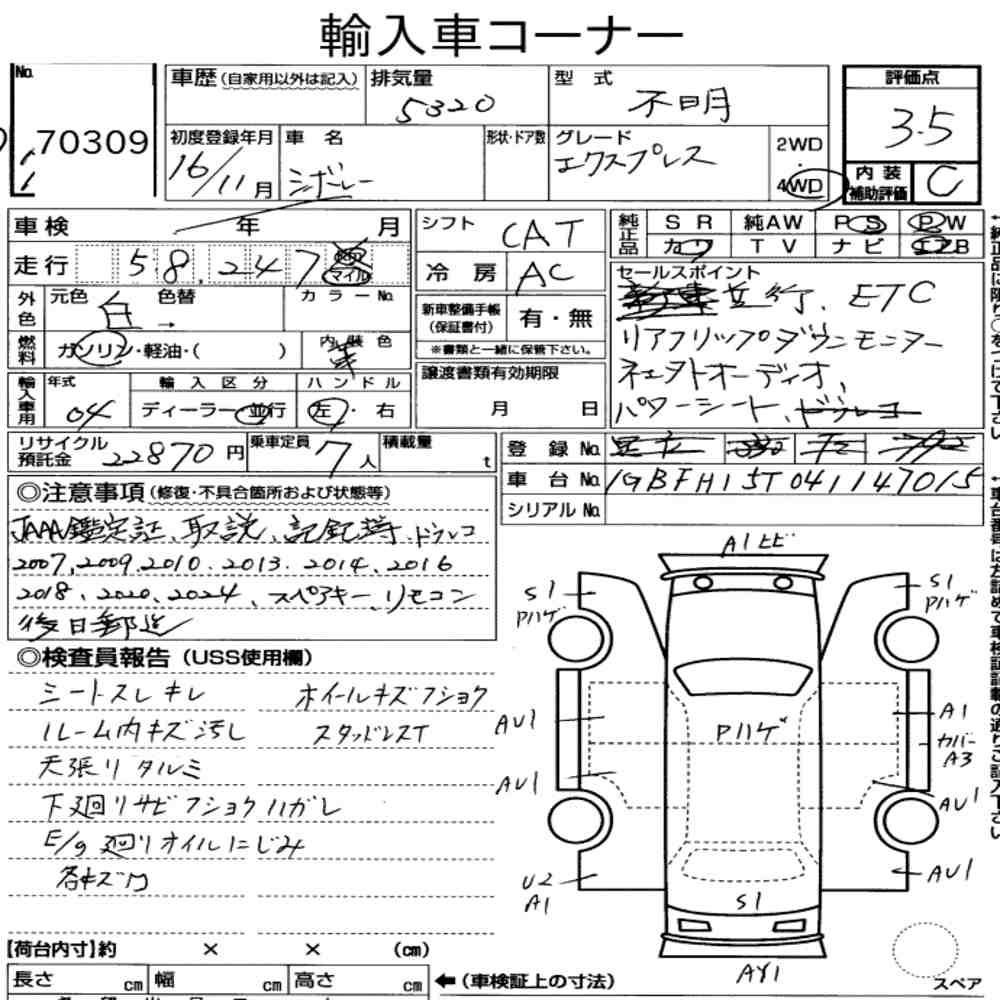 輸入車コーナー
No. 70309
車歴(自家用以外は記入)
排気量 5320
型式 不明
評価点 3.5
初度登録年月 16/11月
車名 シボレー
形状・ドア数
グレード エクスプレス
2WD・4WD
内装補助評価 C
車検 年 月
シフト CAT
純正品 SR 純AW PS PW
カワ TV ナビ エアB
走行 58,247 km マイル
冷房 AC
セールスポイント
新車並行、ETC
リアフリップダウンモニター
社外オーディオ、
パワーシート、ドラレコ
外色 元色 白 → 色替 カラーNo.
新車整備手帳(保証書付) 有・無
※書類と一緒に保管下さい。
燃料 ガソリン・軽油・( ) 内装色 茶
譲渡書類有効期限
月 日
輸入車用 年式 04
輸入区分 ディーラー・並行
ハンドル 左・右
リサイクル預託金 22870円
乗車定員 7人
積載量 t
登録No.
車台No. 1GBFH15T041147015
シリアルNo.
◎注意事項(修復・不具合箇所および状態等)
JAAA鑑定証、取説、記録簿、ドラレコ
2007、2009、2010、2013、2014、2016
2018、2020、2024、スペアキー、リモコン
後日郵送
◎検査員報告(USS使用欄)
シートスレキレ ホイールキズフショク
ルーム内キズ汚し スタッドレスT
天張リタルミ
下廻リサビフショクハガレ
E/g廻リオイルにじみ
各キズ凹
A1ヒビ
S1 Pハゲ
S1 Pハゲ
AU1
Pハゲ
A1
カバーA3
AU1
AU1
U2 A1
AU1
S1
AY1
スペア
【荷台内寸】約 × × (cm)
長さ cm 幅 cm 高さ cm
←(車検証上の寸法)